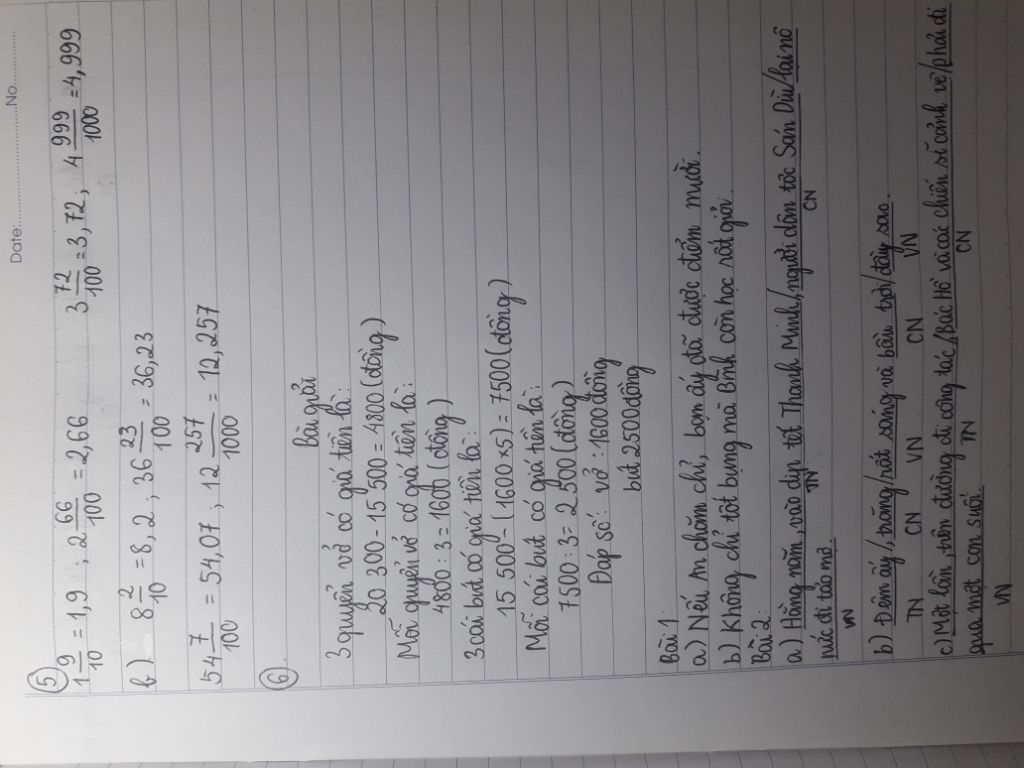 Date:..................No.........
⑤
1 9/10 = 1,9 ; 2 66/100 = 2,66 3 72/100 = 3,72 ; 4 999/1000 = 4,999
b) 8 2/10 = 8,2 ; 36 23/100 = 36,23
54 7/100 = 54,07 ; 12 257/1000 = 12,257
⑥.
bài giải
3 quyển vở có giá tiền là:
20 300 - 15 500 = 4800 (đồng)
Mỗi quyển vở có giá tiền là:
4800 : 3 = 1600 (đồng)
3 cái bút có giá tiền là:
15 500 - (1600 x 5) = 7500 (đồng)
Mỗi cái bút có giá tiền là:
7500 : 3 = 2 500 (đồng)
Đáp số: vở : 1600 đồng
bút 2500 đồng
Bài 1:
a) Nếu m chăm chỉ, bạn ấy đã được điểm mười.
b) Không chỉ tốt bụng mà Bình còn học rất giỏi.
Bài 2:
a) Hằng năm, vào dịp tết Thanh Minh,/người dân tộc Sán Dìu/lại nô
TN CN
nức đi tảo mộ
VN
b) Đêm ấy/, trăng/rất sáng và bầu trời/đầy sao.
TN CN VN CN VN
c) Một lần, trên đường đi công tác,/Bác Hồ và các chiến sĩ cảnh vệ/phải đi
TN CN
qua một con suối.
VN